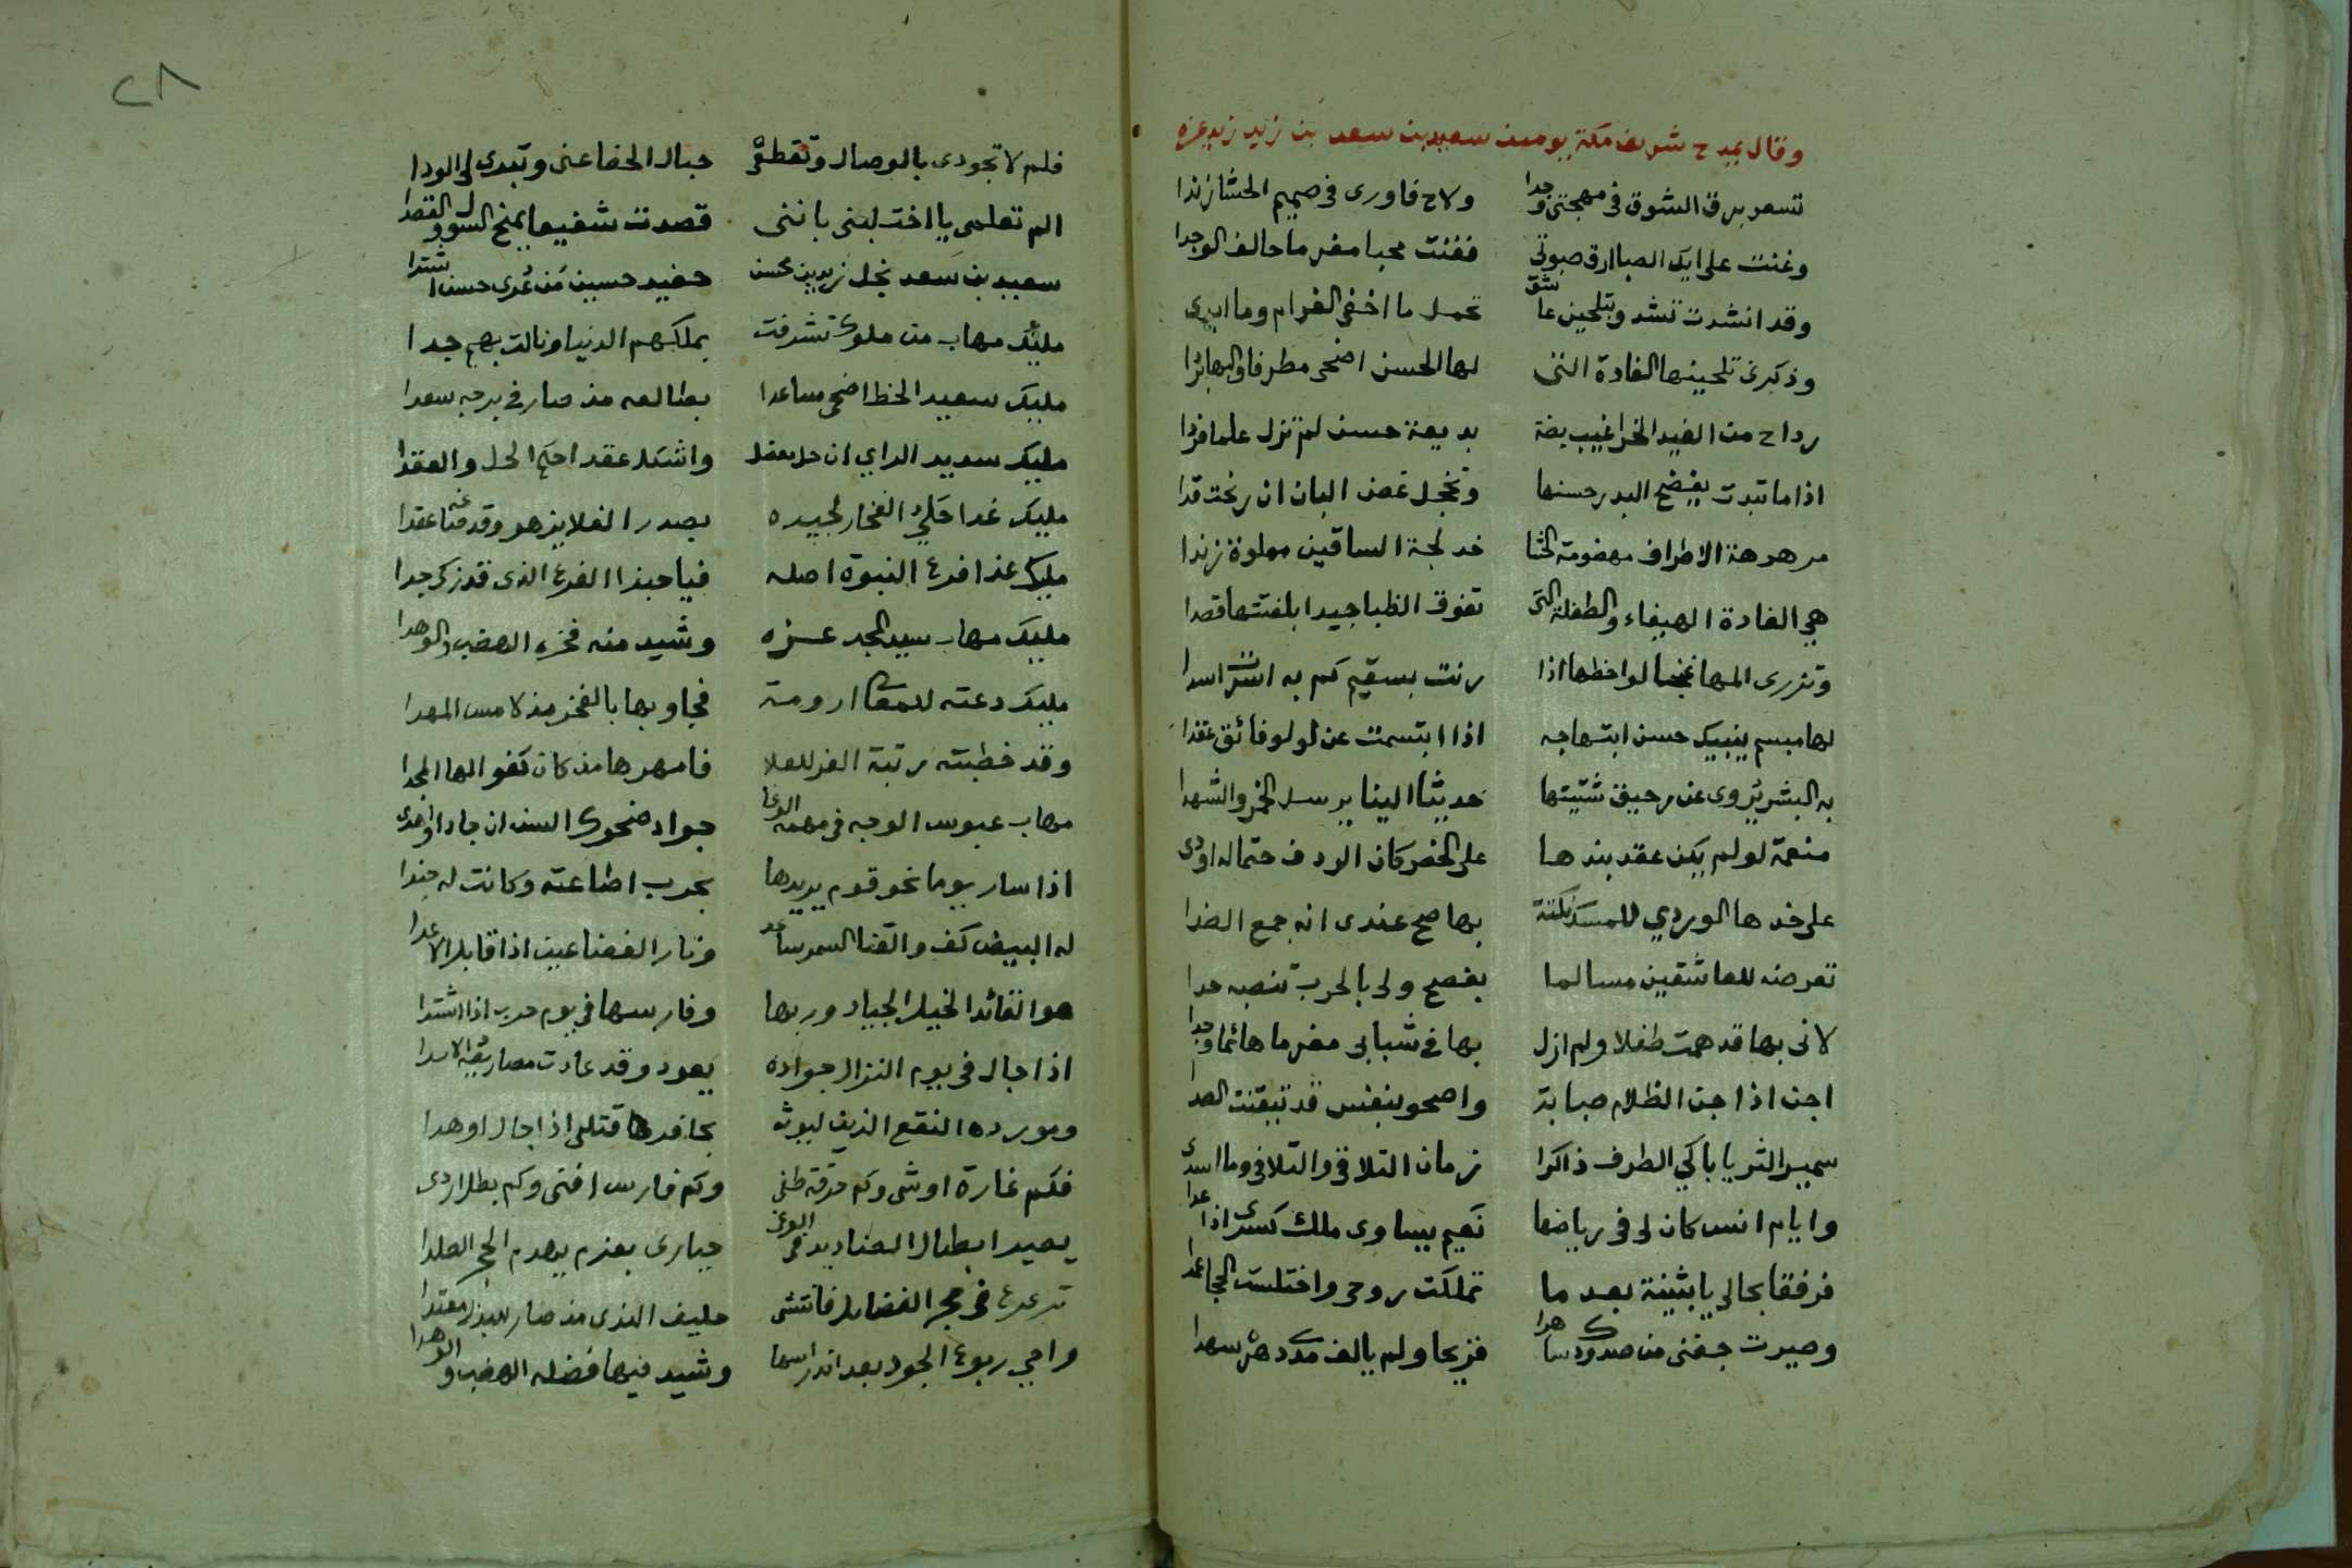 وقال يمدح شريف مكة يومئذ سعيد بن سعد بن زيد زيد عزه
تسعر برق الشوق في مهجتي وجدا ولاح فاورى في صميم الحشا زندا
وغنت على ايك الصبا ارق صبوتي فغنت محبا مغرما حالف الوجدا
وقد انشدت تشدو بتلحين عاشق تحمل ما اخفى الغرام وما ابدى
وذكرني تلحينها الغادة التي لها الحسن اضحى مطرفا والبها بردا
رداح من الغيد الخراعيب بضة بديعة حسن لم تزل علما فردا
اذا ما تبدت يفضح البدر حسنها وتخجل غصن البان ان رنحت قدا
مرهرهة الاطراف مهضومة الحشا خدلجة الساقين مملوة زندا
هي الغادة الهيفاء والطفلة التي تفوق الظبا جيدا بلفتتها قصدا
وتزري المها لواحظها اذا رنت بسقيم كم به اسدا
لها مبسم ينبيك حسن ابتهاجه اذا ابتسمت عن لولو فائق عقدا
به البشر يروى عن رحيق شتيتها حديثا الينا يرسل الخمر والشهدا
منعمة لو لم يكن عقد بندها على الخصر كان الردف حتما له اودى
على خدها الوردي للمسك نكتة بها صح عندي انه جمع الضدا
تعرضه للعاشقين مسالما يفصح ولي بالحرب تنصبه حدا
لاني بها قد همت طفلا ولم ازل بها في شبابي مغرما هائما وجدا
اجن اذا جن الظلام صبابة واصحو بنفس قد تيقنت الصدا
سمير الثريا باكي الطرف ذاكرا زمان التلاقي والتلافي وما اسدى
وايام انس كان لي في رياضها نعيم يساوى ملك كسرى اذا عدا
فرفقا بحالي يا بثينة بعد ما تملكت روحي واختلست الحجا عمدا
وصيرت جفني من صدودك ساهدا قريحا ولم يالف سهدا
٢٨
فلم لا تجودى بالوصال وتقطعى حبال الجفا عني وتبدى لي الودا
الم تعلمي يا اخت لبنى بانني قصدت شفيعا يمنح السول والقصدا
سعيد بن سعد نجل زيد بن محسن حفيد حسين من غدى حسن اشتدا
مليك مهاب من ملوك تشرفت بملكهم الدنيا ونالت بهم جدا
مليك سعيد الحظ اضحى مساعدا بطالعه مذ صار في برجه سعدا
مليك سديد الراي ان حل معضل واشكل عقد احكم الحل والعقدا
مليك غدا حلي الفخار لجيده بصدر العلا يزهو وقد عقدا
مليك غدا فرع النبوة اصله فيا حبذا الفرع الذي قد زكى جدا
مليك مهاب سيد المجد عزه وشيد منه فخره الهضب والوهدا
مليك دعته للمعالي ارومة فجاوبها بالفخر مذ لامس المهدا
وقد خطبته رتبة العز للعلا فامهرها مذ كان كفوا لها المجدا
مهاب عبوس الوجه في مهمه الوغا جواد ضحوك السن ان جاد او اهدى
اذا سار يوما نحو قوم يريدها بحرب اطاعته وكانت له جندا
له البيض كف والقنا السمر ساعد ونار الغضا عين اذا قابل الاعدا
هو القائد الخيل الجياد وربها وفارسها في يوم حرب اذا اشتدا
اذا جال في يوم النزال جواده يعود وقد عادت الاسدا
ومورده النقع الذي ليوثه بحافرها قتلى اذا جال او هدا
فكم غارة اوشى وكم فرقة طفى وكم فارس افنى وكم بطل اردى
يصير ابطال الصناديد في الوغى حيارى بعزم يهدم الحجر الصلدا
ترعرع في حجر الفضايل فانتشى حليف الندى مذ صار للبذل معتدا
واحي ربوع الجود بعد اندراسها وشيد فيها فضله الهضب والوهدا